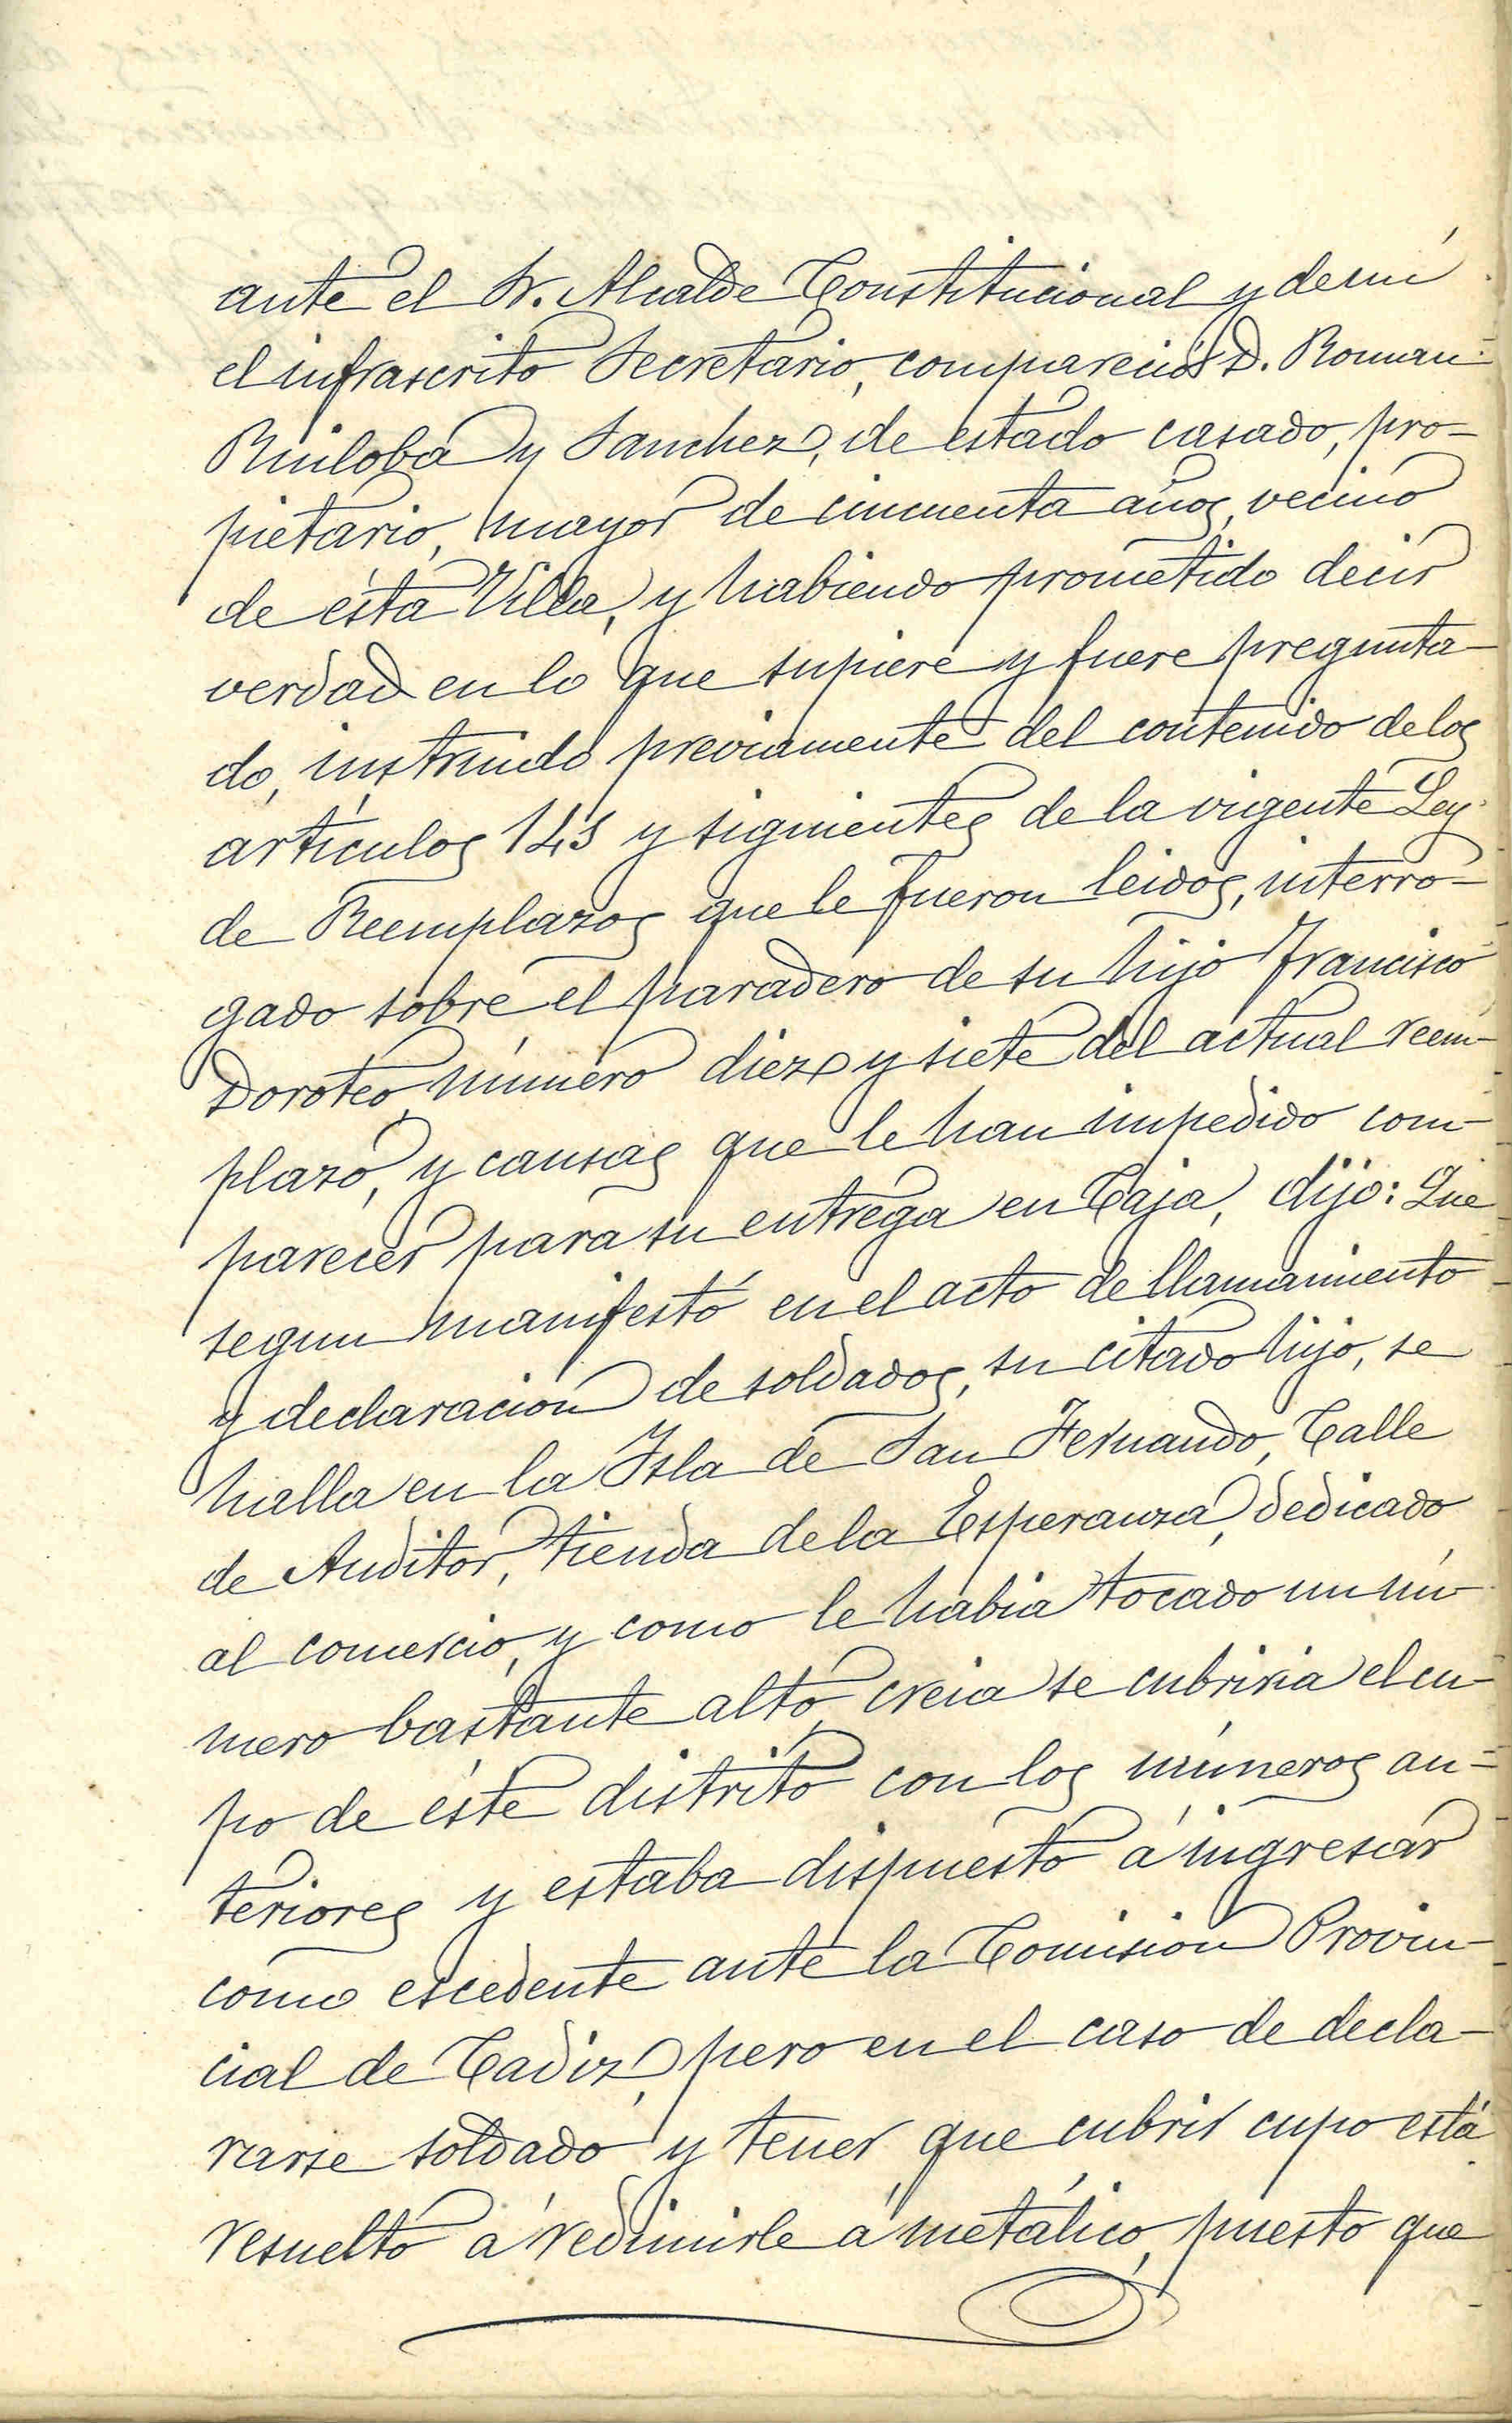 ante el Sr. Alcalde Constitucional y de mí
el infrascrito Secretario, compareció D. Roman
Ruiloba y Sanchez, de estado casado, pro-
pietario, mayor de cincuenta años, vecino
de ésta Villa, y habiendo prometido decir
verdad en lo que supiere y fuere pregunta-
do, instruido previamente del contenido de los
artículos 143 y siguientes de la vigente Ley
de Reemplazos que le fueron leidos, interro-
gado sobre el paradero de su hijo Francisco
Doroteo, número diez y siete del actual reem-
plazo, y causas que le han impedido com-
parecer para su entrega en Caja, dijo: Que
segun manifestó en el acto de llamamiento
y declaracion de soldados, su citado hijo, se
halla en la Isla de San Fernando, Calle
de Auditor, tienda de la Esperanza, dedicado
al comercio, y como le habia tocado un nú-
mero bastante alto, creia se cubriria el cu-
po de éste distrito con los números an-
teriores y estaba dispuesto á ingresar
como escedente ante la Comision Provin-
cial de Cadiz, pero en el caso de decla-
rarse soldado y tener que cubrir cupo está
resuelto á redimirle á metálico, puesto que